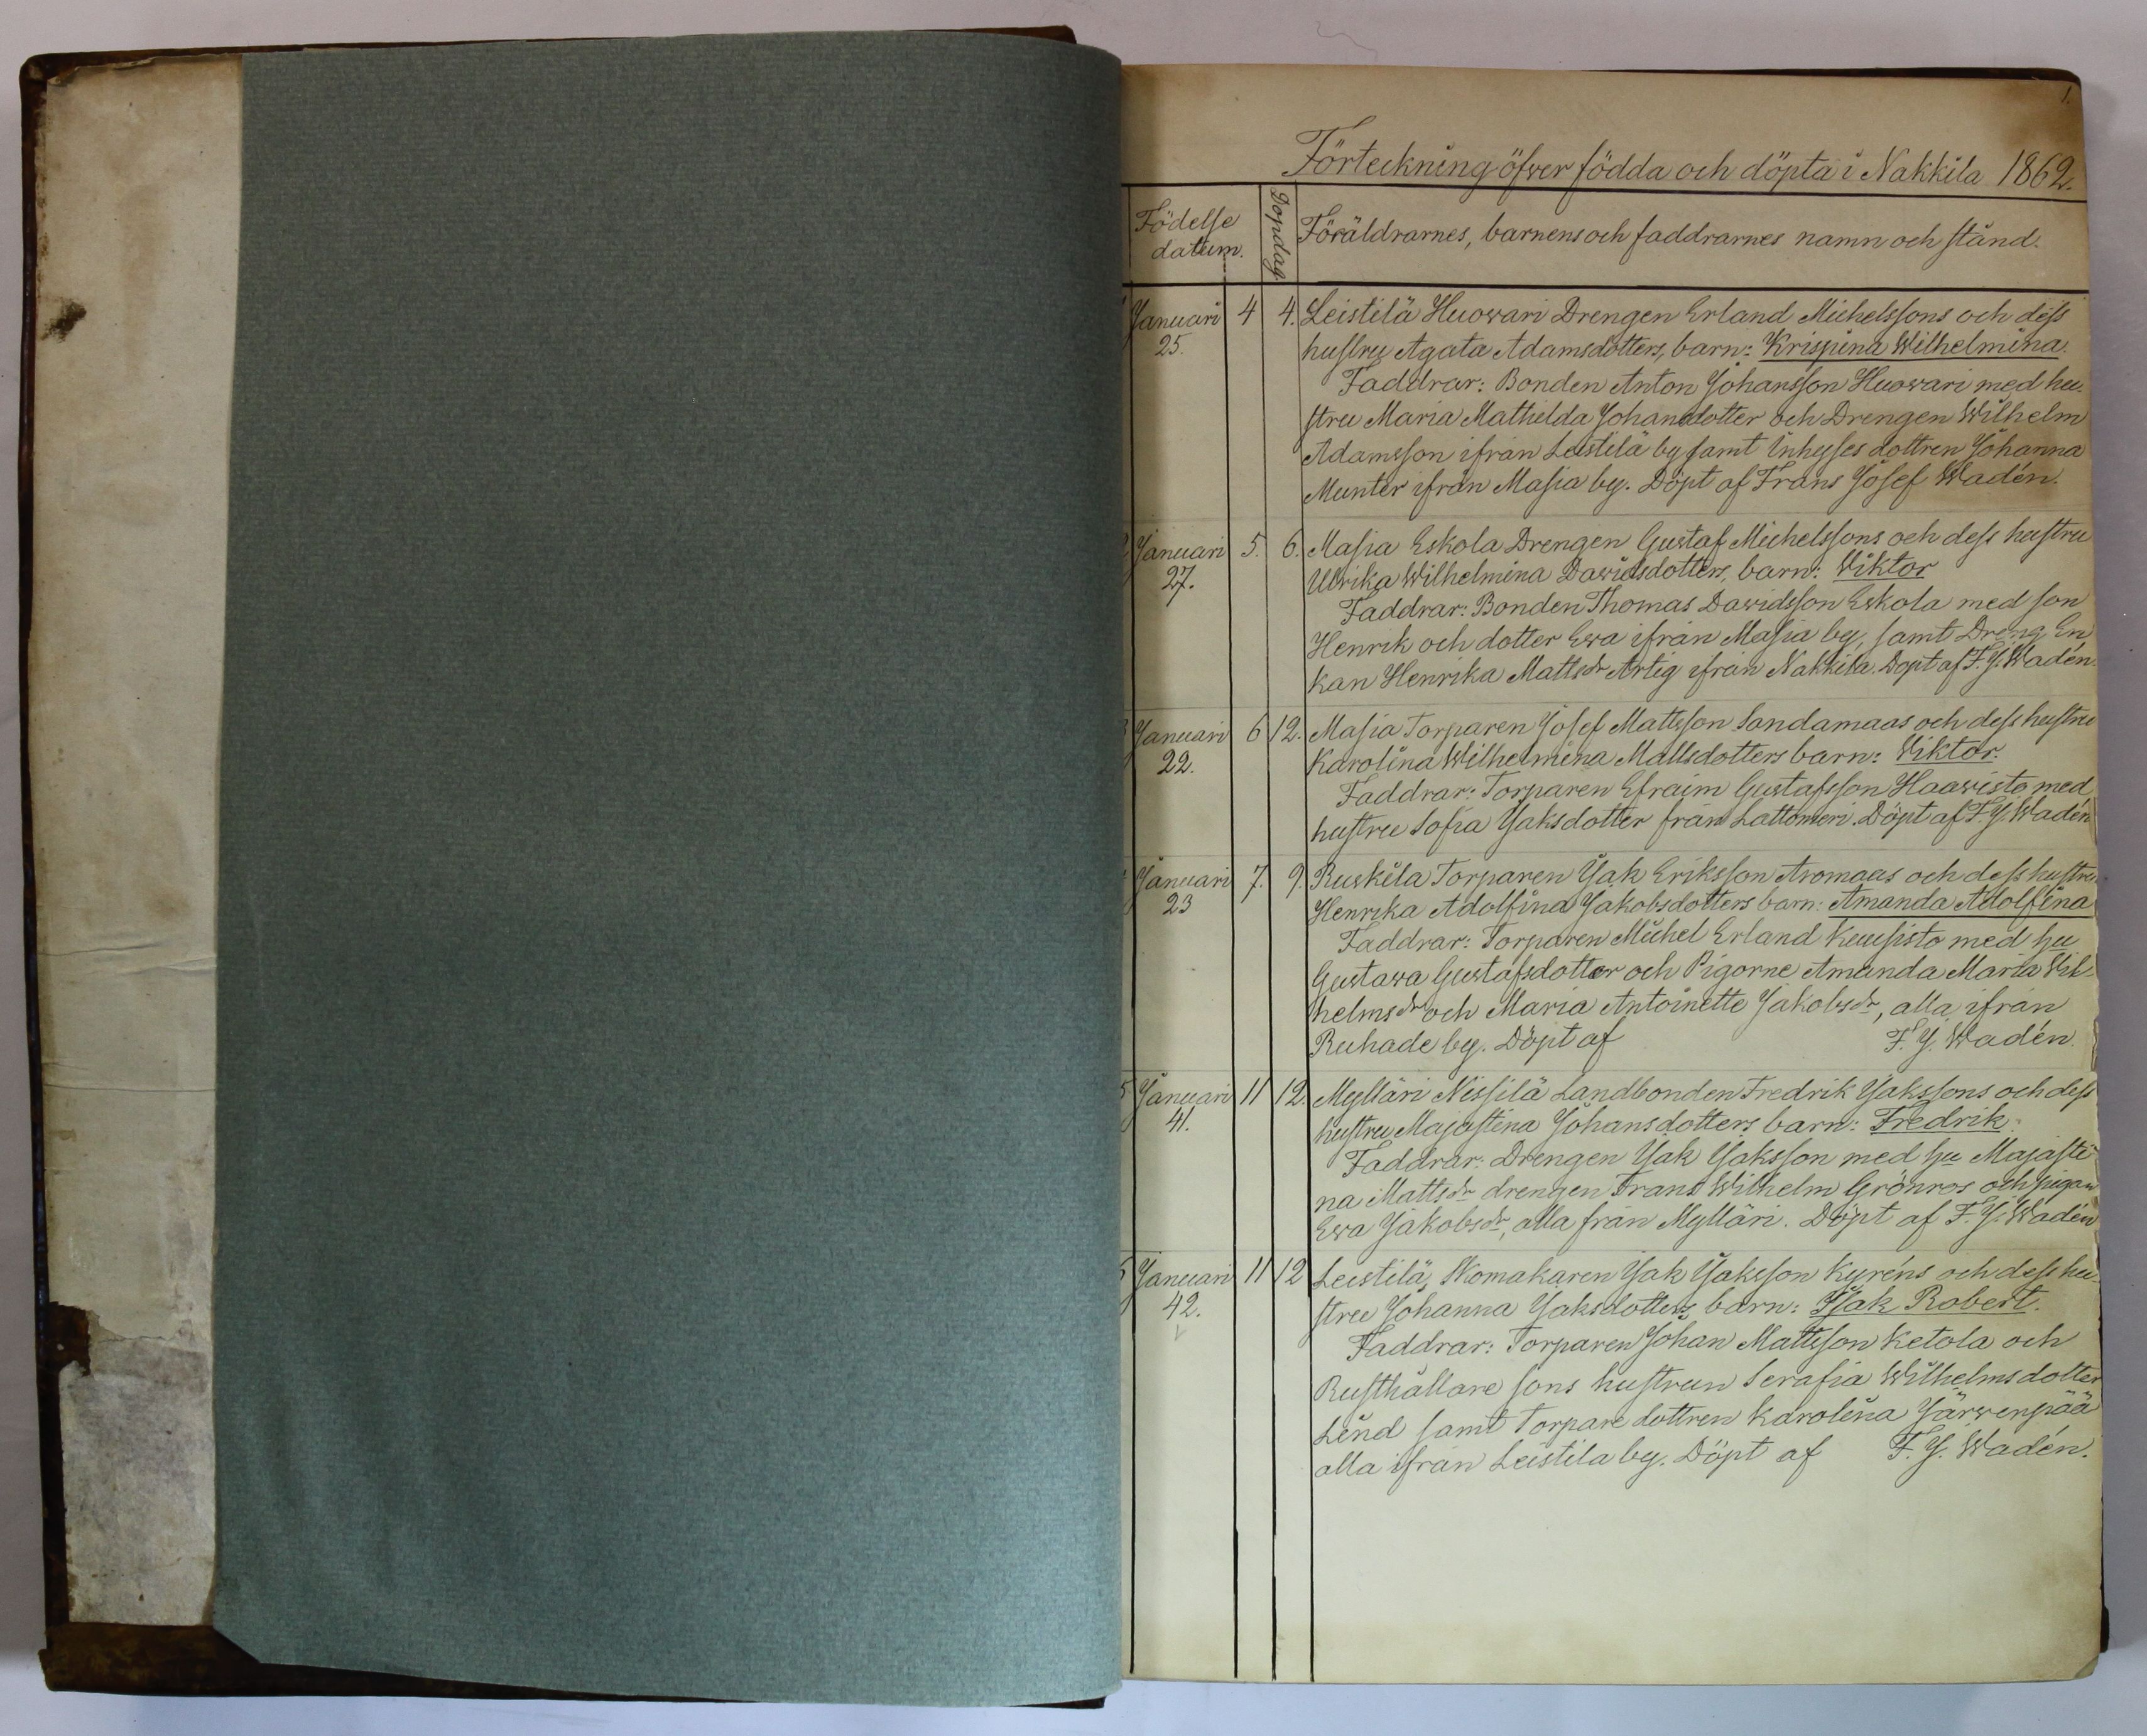 1.
Förteckning öfver födda och döpta i Nakkila 1862.
Födelse datum. Dopdag. Föräldrarnes, barnens och faddrarnes namn och stånd.
1 Januari 4 4. Leistilä Huovari Drengen Erland Michelssons och dess
25. hustru Agata Adamsdotters, barn: Krispina Wilhelmina.
Faddrar: Bonden Anton Johansson Huovari med hu-
stru Maria Mathilda Johansdotter och Drengen Wilhelm
Adamsson ifrån Leistilä by samt Inhyses dottren Johanna
Munter ifrån Masia by. Döpt af Frans Josef Wadén.
2 Januari 5. 6. Masia Eskola Drengen Gustaf Michelssons och dess hustru
27. Ulrika Wilhelmina Davidsdotters, barn: Viktor
Faddrar: Bonden Thomas Davidsson Eskola med son
Henrik och dotter Eva ifrån Masia by, samt Dreng En
kan Henrika Matts dr Artig ifrån Nakkila. Döpt af F. J. Wadén.
3 Januari 6 12. Masia Torparen Josef Mattsson Sondamaas och dess hustru
22. Karolina Wilhelmina Mattsdotters barn: Viktor.
Faddrar: Torparen Efraim Gustafsson Haavisto med
hustru Sofia Jaksdotter från Lattomeri. Döpt af F. J. Wadén
4 Januari 7. 9. Ruskila Torparen Jak Eriksson Aromaas och dess hustru
23 Henrika Adolfina Jakobsdotters barn: Amanda Adolfina
Faddrar: Torparen Michel Erland Kuusisto med hu
Gustava Gustafsdotter och Pigorne Amanda Maria Wil-
helms dr och Maria Antoinette Jakobs dr, alla ifrån
Ruhade by. Döpt af F. J. Wadén.
5 Januari 11 12. Mylläri Nissilä Landbonden Fredrik Jakssons och dess
41. hustru Majastina Johansdotters barn: Fredrik.
Faddrar: Drengen Jak Jaksson med hu Majasti-
na Matts dr drengen Frans Wilhelm Grönros och pigan
Eva Jakobs dr, alla från Mylläri. Döpt af F. J. Wadén
6 Januari 11 12 Leistilä, Skomakaren Jak Jaksson Kyréns och dess hu-
42. stru Johanna Jaksdotters barn: Isak Robert.
Faddrar: Torparen Johan Mattsson Ketola och
Rusthållare sons hustrun Serafia Wilhelmsdotter
Lind samt Torpare dottren Karolina Järvenpää
alla ifrån Leistila by. Döpt af F. J. Wadén.